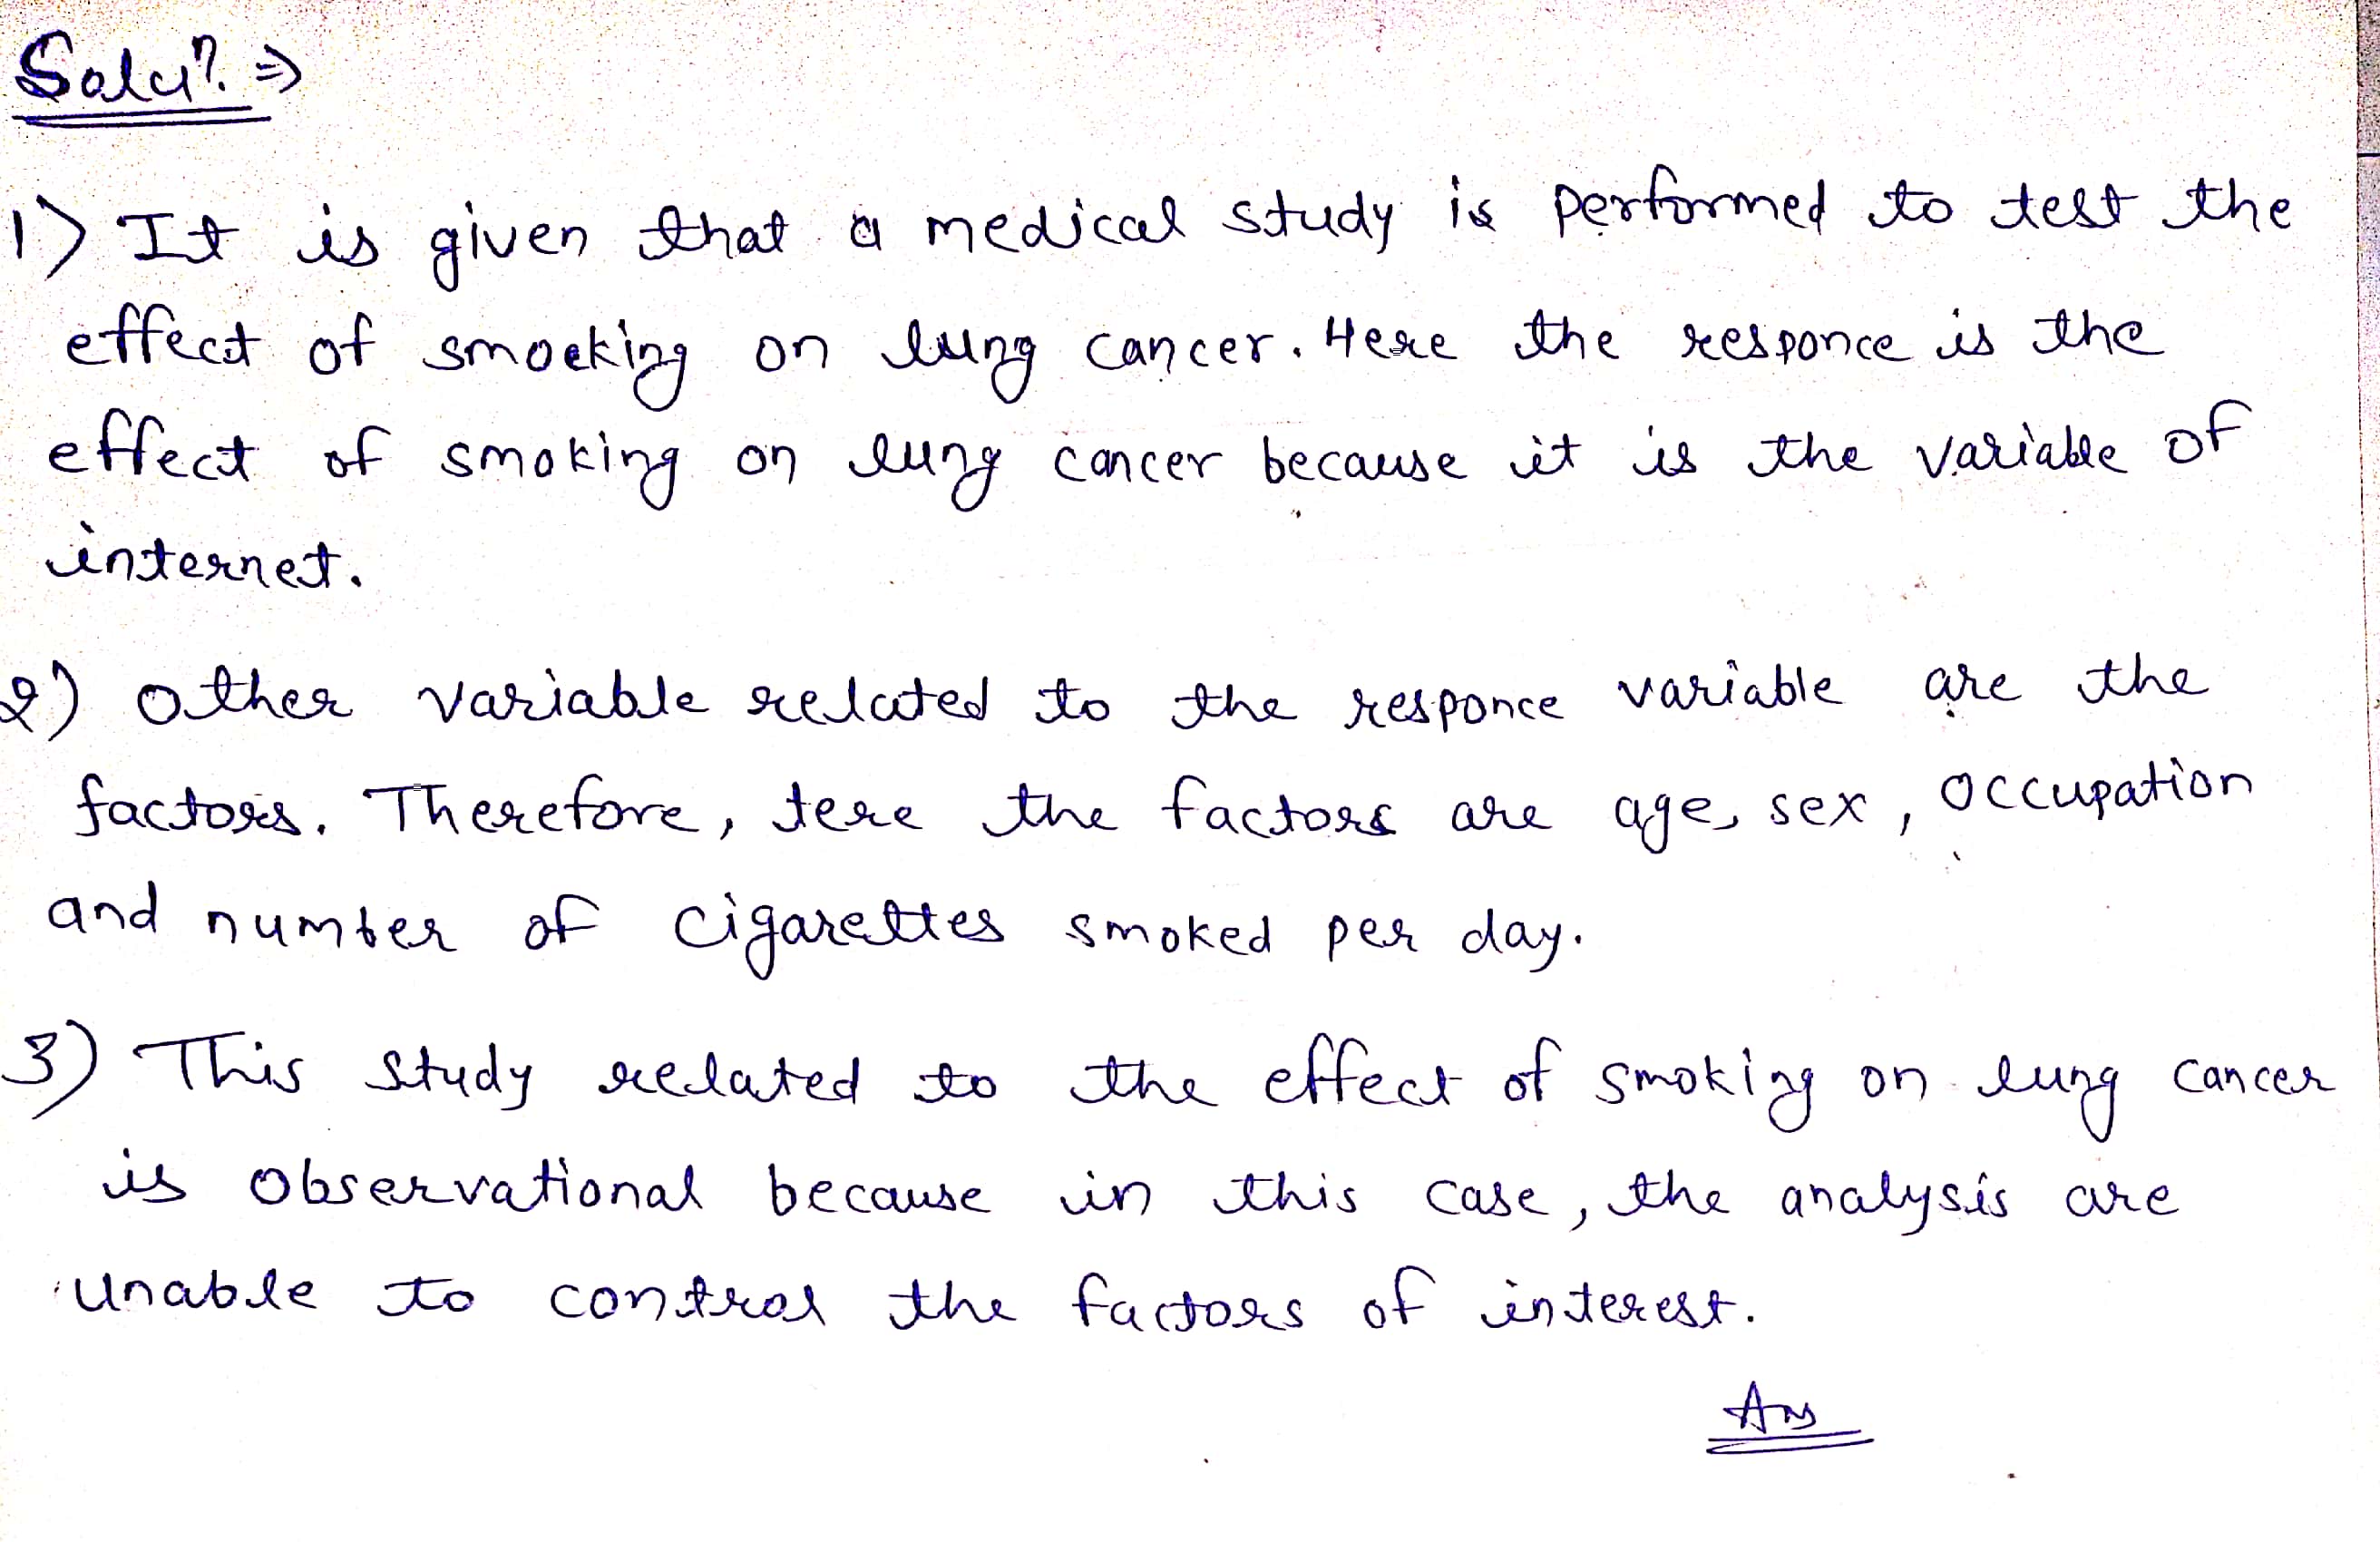 Solun. ⇒
1) It is given that a medical study is performed to test the
effect of smoeking on lung cancer. Here the responce is the
effect of smoking on lung cancer because it is the variable of
internet.
2) Other variable related to the responce variable are the
factors. Therefore, tere the factors are age, sex, occupation
and number of cigarettes smoked per day.
3) This study related to the effect of smoking on lung cancer
is observational because in this case, the analysis are
unable to control the factors of interest.
Ans